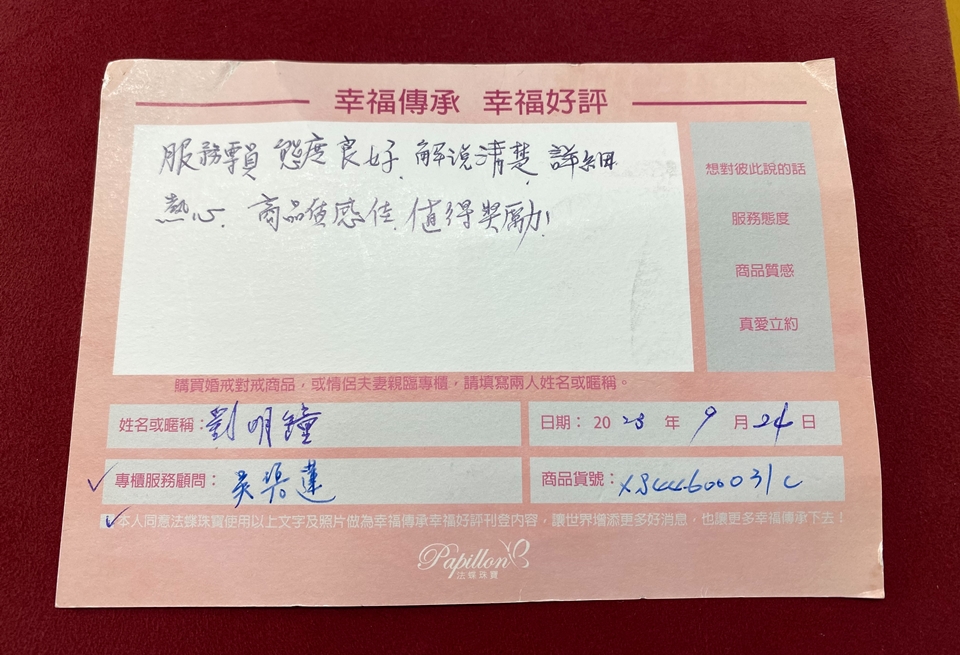 幸福傳承 幸福好評
服務員 態度良好. 解说清楚. 詳細
熱心. 商品质感佳. 值得奨励!
想對彼此說的話
服務態度
商品質感
真愛立約
購買婚戒對戒商品，或情侶夫妻親臨專櫃，請填寫兩人姓名或暱稱。
姓名或暱稱：劉明鐘
日期： 20 23 年 9 月 24 日
✓ 專櫃服務顧問： 吳蓮
商品貨號：
✓本人同意法蝶珠寶使用以上文字及照片做為幸福傳承幸福好評刊登內容，讓世界增添更多好消息，也讓更多幸福傳承下去！
Papillon
法蝶珠寶